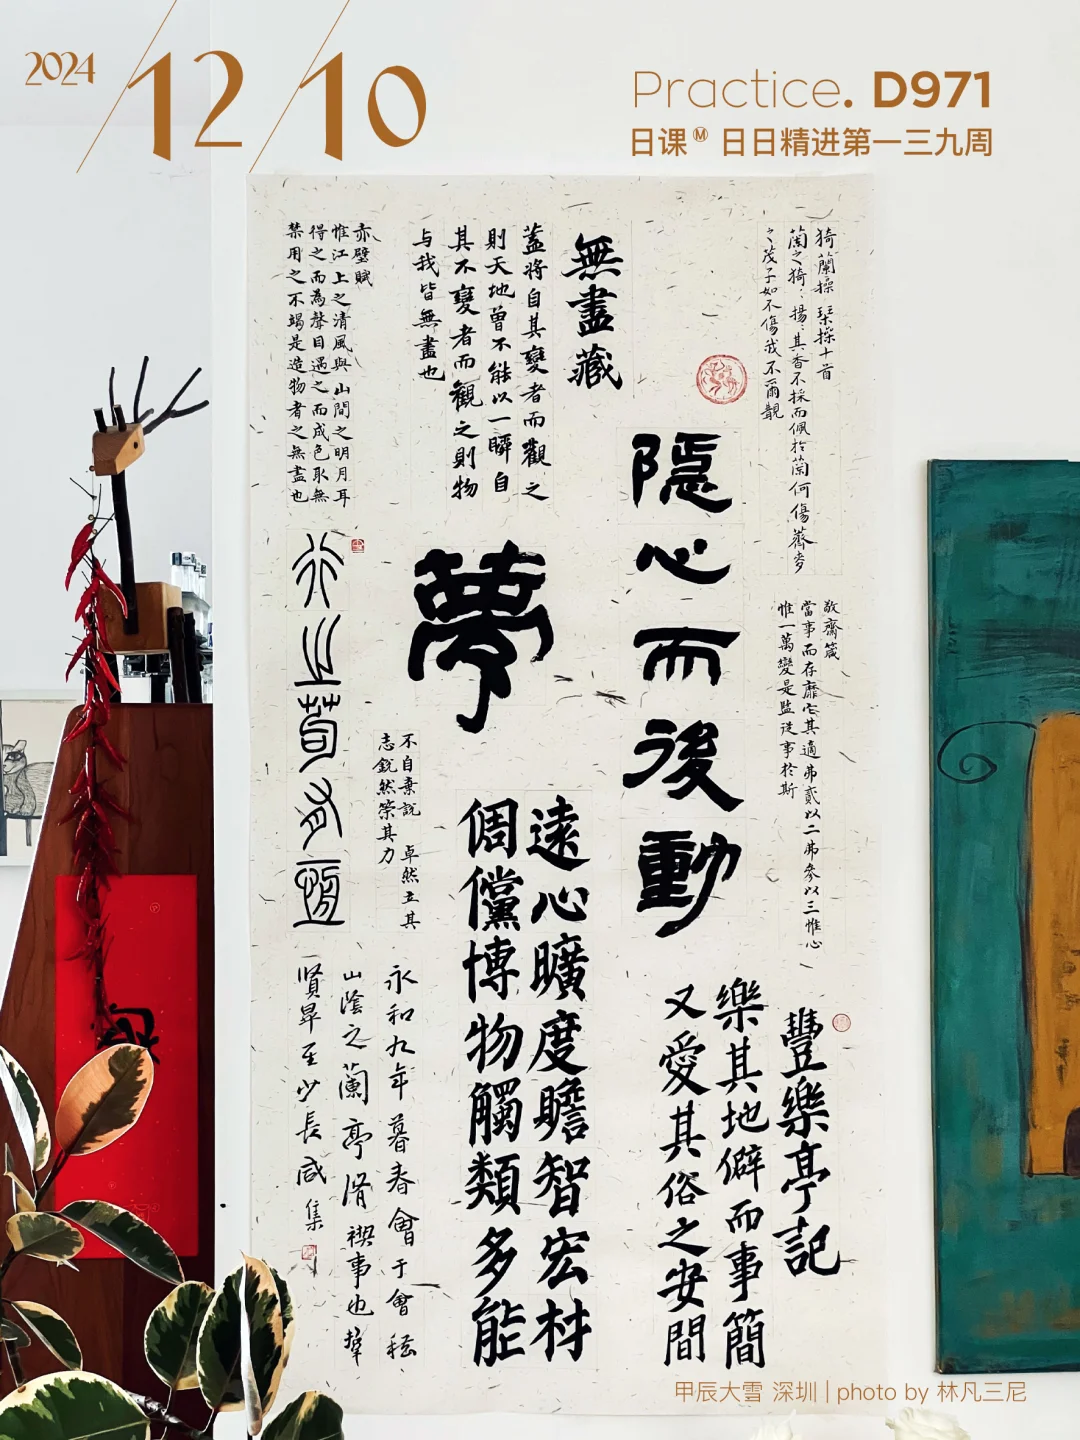 2024
12/10
Practice. D971
日课Ⓜ 日日精进第一三九周
猗蘭操 琹操十首
蘭之猗猗揚揚其香不採而佩於蘭何傷薺麥
之茂子如不傷我不爾覯
無盡藏
蓋將自其變者而觀之
則天地曾不能以一瞬自
其不變者而觀之則物
与我皆無盡也
赤壁賦
惟江上之清風與山間之明月耳
得之而為聲目遇之而成色取無
禁用之不竭是造物者之無盡也
隱心而後動
夢
行之苟有恆
敬齋箴
當事而存靡它其適弗貳以二弗參以三惟心
惟一萬變是監從事於斯
不自棄說 卓然立其
志銳然策其力
遠心曠度瞻智宏材
倜儻博物觸類多能
豐樂亭記
樂其地僻而事簡
又愛其俗之安閒
永和九年暮春會于會稽
山蔭之蘭亭脩禊事也羣
賢畢至少長咸集
甲辰大雪 深圳 | photo by 林凡三尼